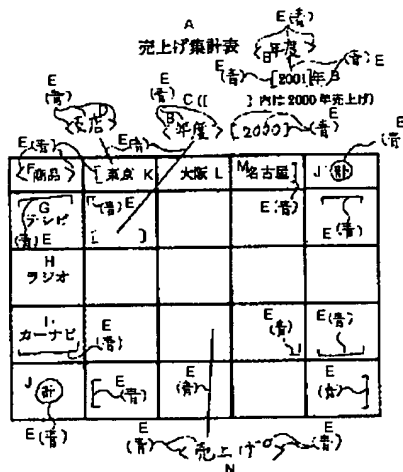 A
E E(青)
売上げ集計表 <B年度>
E(青) [2001]年B (青)E
E(青) D E(青) C([ ]内は2000年売上げ)
<支店> E(青) <B年度> [2000] E(青)
E(青) E E(青)
<F商品> [東京 K 大阪 L M名古屋] J 計
G テレビ (青)E [(青)E ] E(青) E(青)
H
ラジオ
I
カーナビ E(青) E(青) E(青)
J 計 [E(青) E(青) E(青)]
E(青) E(青) <売上げO> E(青)
N